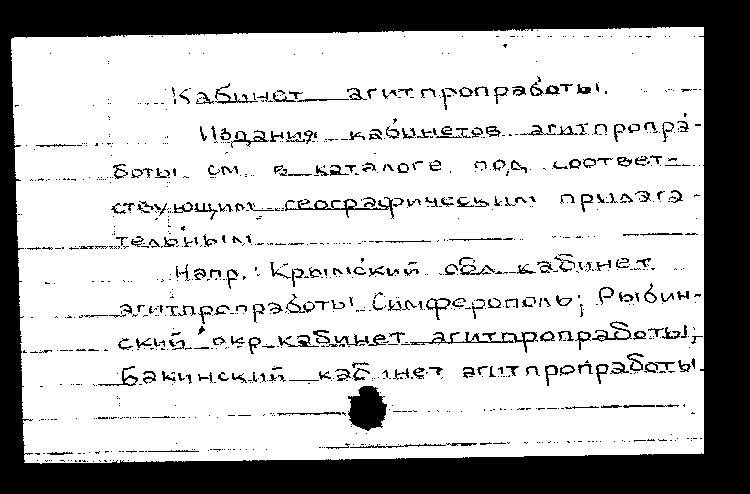 Кабинет агитпропработы.
Издания кабинетов агитпропра-
боты см. в каталоге под соответ-
ствующим географическим прилага-
тельным
Напр.: Крымский обл. кабинет
агитпропработы Симферополь; Рыбин-
ский окр. кабинет агитпропработы;
Бакинский кабинет агитпропработы.